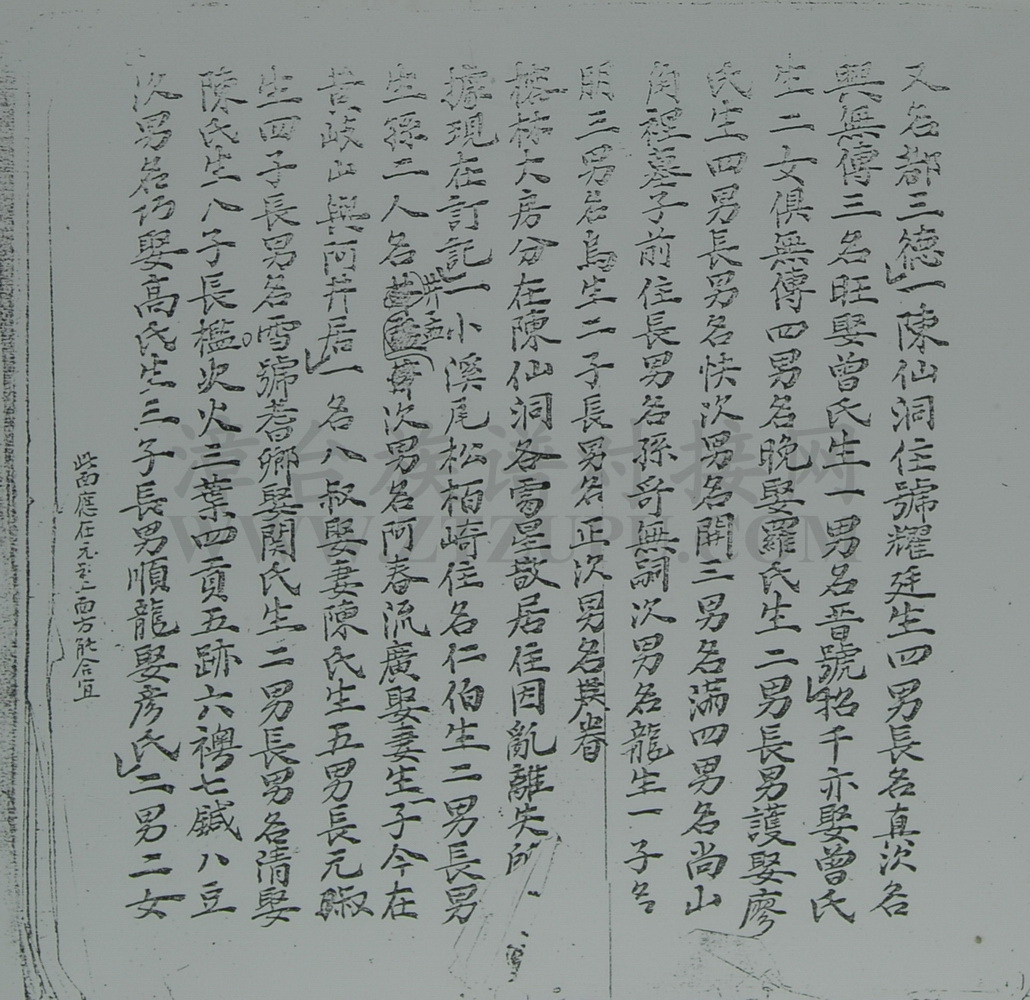 又名都三德一陳仙洞住號耀廷生四男長名真次名
興無傳三名旺娶曾氏生一男名晋號招千亦娶曾氏
生二女俱無傳四男名晚娶羅氏生二男長男護娶廖
氏生四男長男名快次男名開三男名滿四男名尚山
角裡墓子前住長男名孫哥無嗣次男名龍生一子名
朋三男名烏生二子長男名正次男名
林大房分在陳仙洞各零星散居住因亂離失所
據現在訂記一小溪尾松柏崎住名仁伯生二男長男
生孫二人名 次男名阿春流廣娶妻生一子今在
岐山與阿井居一名八叔娶妻陳氏生五男長元
生四子長男名雪號耆卿娶関氏生二男長男名清娶
陳氏生八子長檻次火三葉四貢五跡六 七鍼八豆
次男名仍娶高氏生三子長男順龍娶彦氏二男二女
此面應在元 面方能合宜
漳台族谱对接网
WWW.ZTZUPU.COM